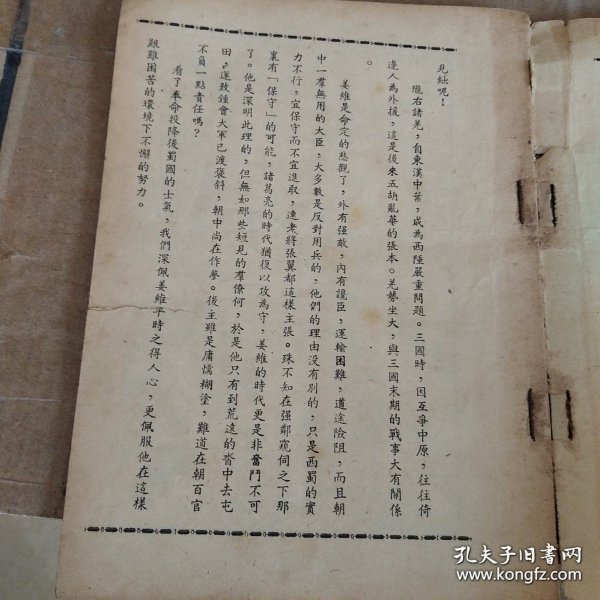 見絀呢！
隴右諸羌，自東漢中葉，成為西陲嚴重問題。三國時，因互爭中原，往往倚
逢人為外援，這是後來五胡亂華的張本。羌勢坐大，與三國末期的戰事大有關係
。
姜維是命定的悲觀了，外有强敵，內有讒臣，運輸困難，道途險阻，而且朝
中一羣無用的大臣，大多數是反對用兵的，他們的理由没有別的，只是西蜀的實
力不行，宜保守而不宜進取，連老將張翼都這樣主張。殊不知在强鄰窺伺之下那
裏有「保守」的可能，諸葛亮的時代猶復以攻為守，姜維的時代更是非奮鬥不可
了。他是深明此理的，但無如那些短見的羣僚何，於是他只有到荒遠的沓中去屯
田，遂致鍾會大軍已渡褒斜，朝中尚在作夢。後主雖是庸懦糊塗，難道在朝百官
不負一點責任嗎？
看了奉命投降後蜀國的士氣，我們深佩姜維平時之得人心，更佩服他在這樣
艱難困苦的環境下不懈的努力。
孔夫子旧书网
www.kongfz.com